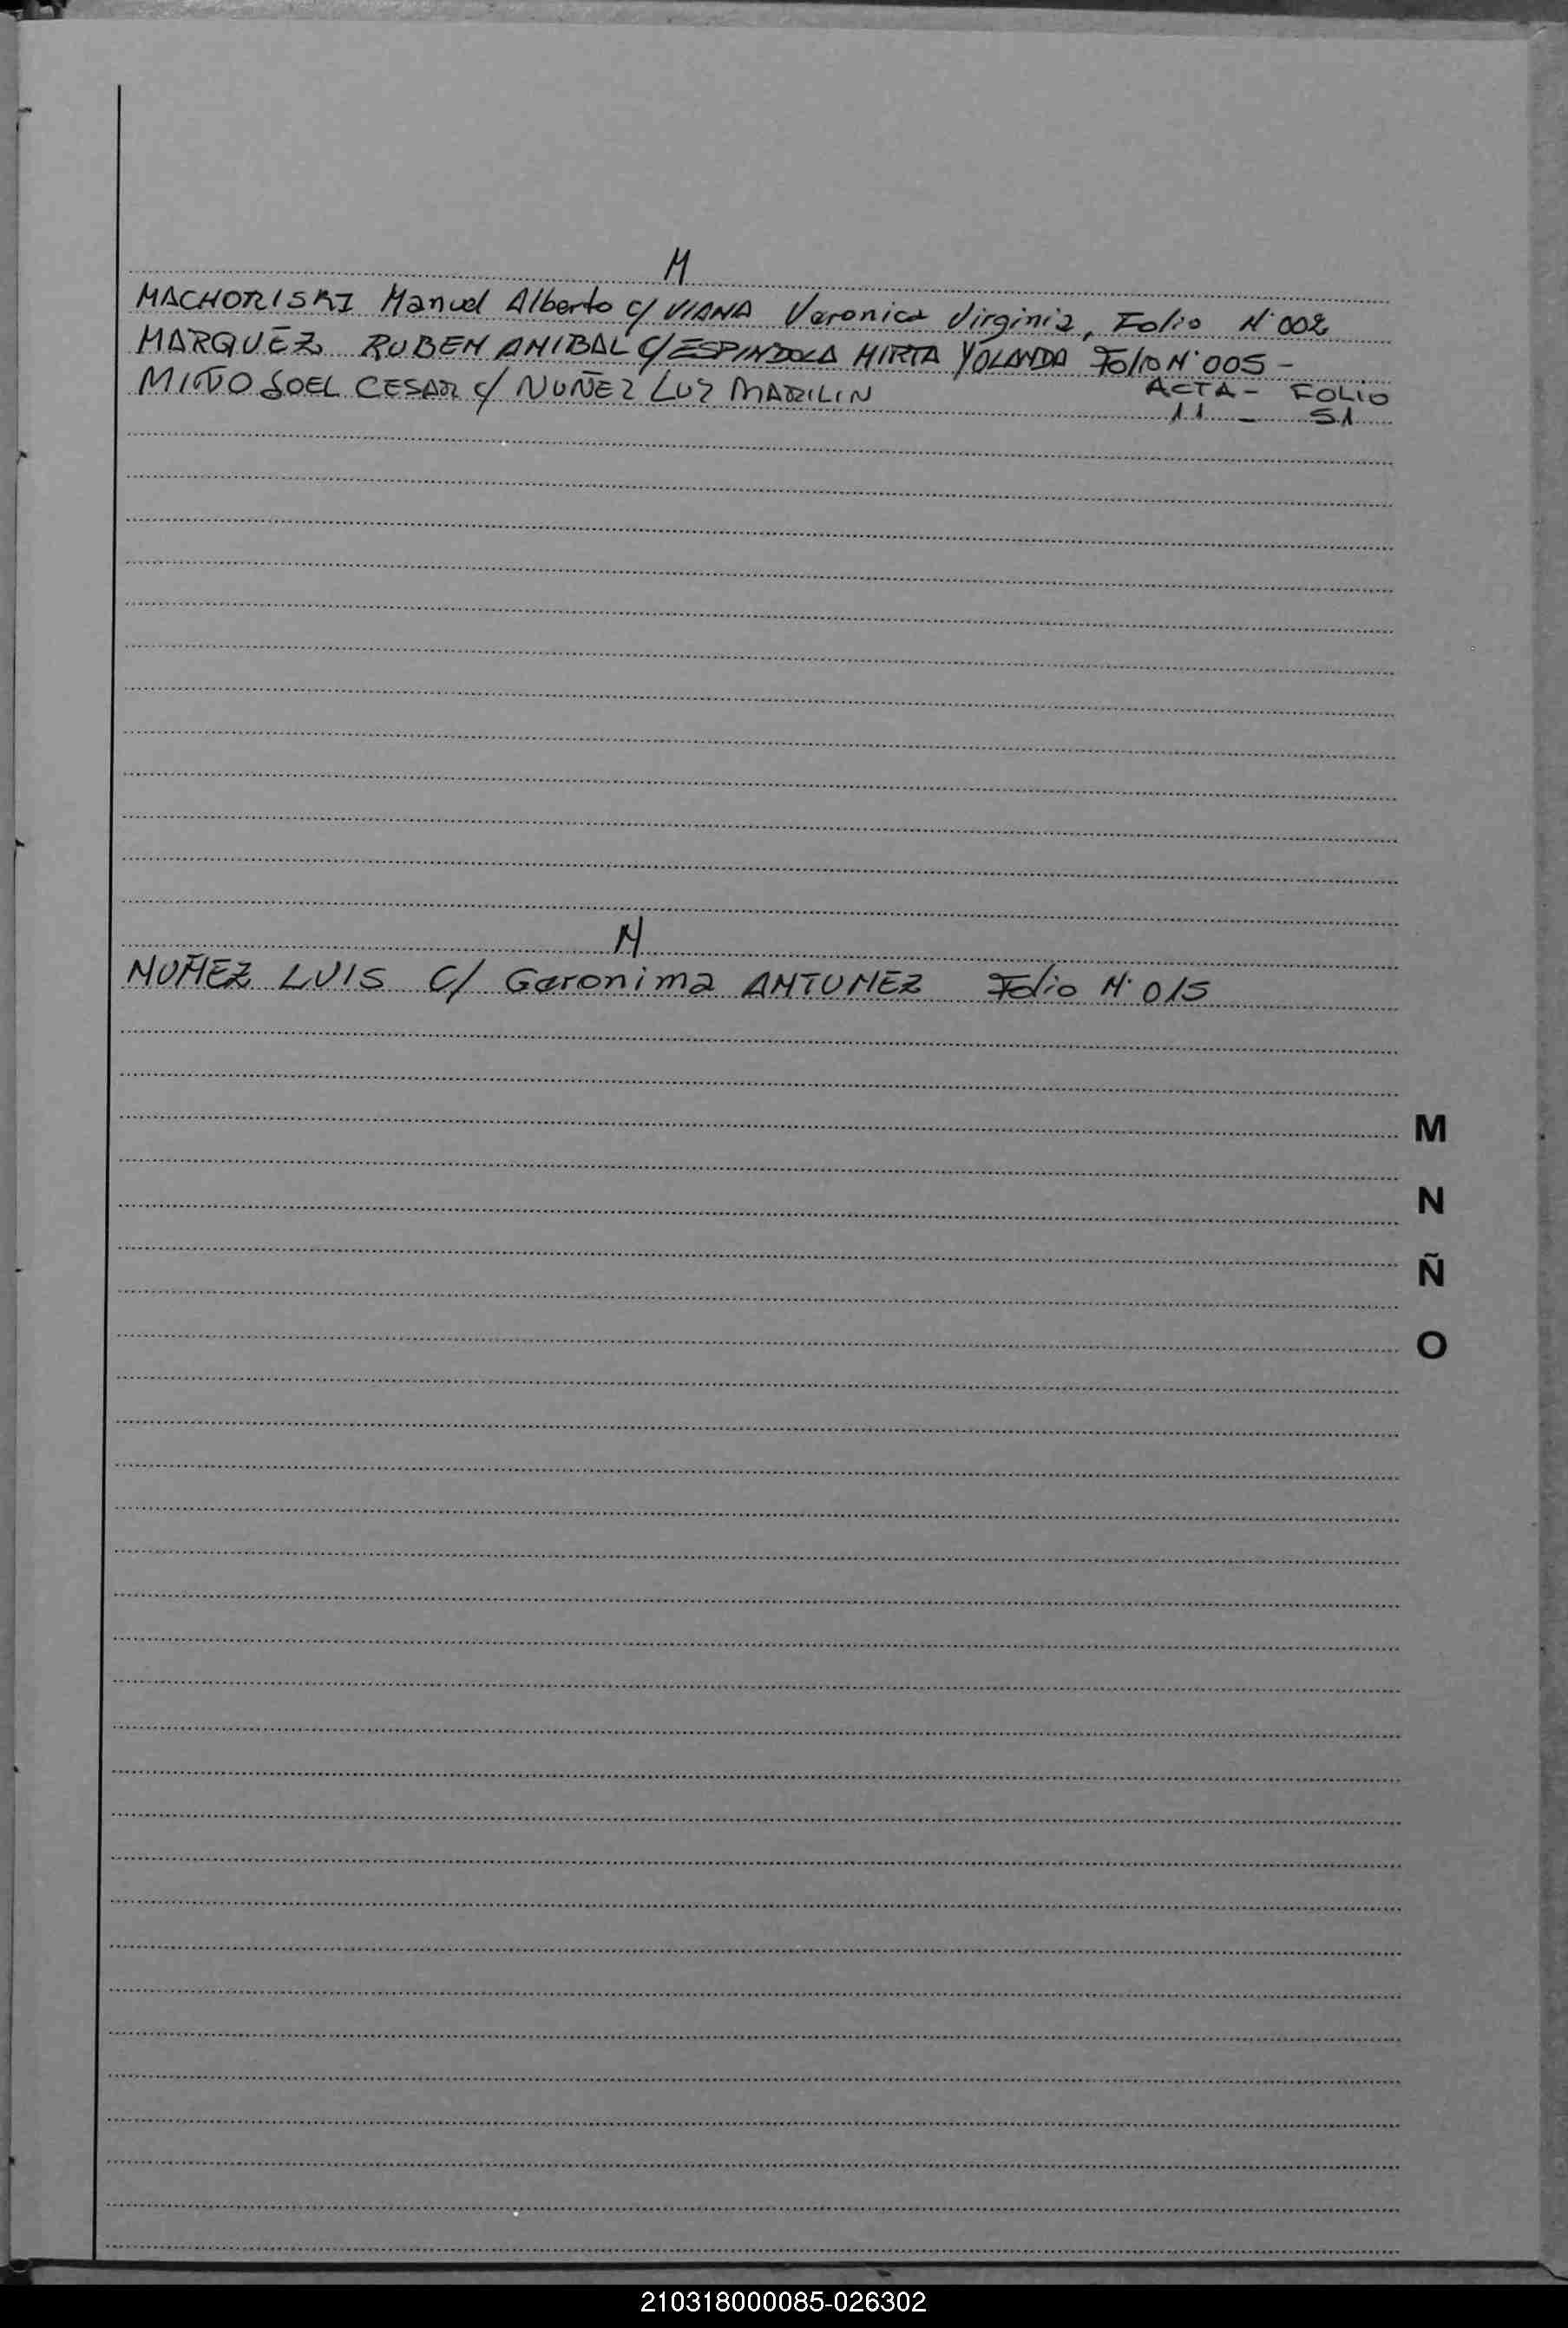 M
MACHORISKI Manuel Alberto c/ VIANA Veronica Virginia, Folio N° 002
MARQUEZ RUBEN ANIBAL C/ ESPINDOLA MIRTA YOLANDA Folio N° 005 -
MIÑO JOEL CESAR c/ NUÑEZ LUZ MARILIN ACTA - FOLIO
11 - 51
N
NUÑEZ LUIS C/ Geronima ANTUNEZ Folio N° 015
M
N
Ñ
O
210318000085-026302